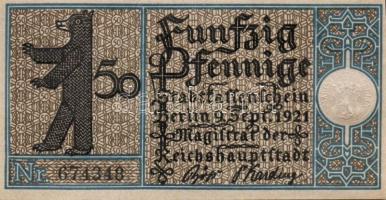 Funfzig
Pfennige
50
Stadtkassenschein
Berlin 9. Sept. 1921
Magistrat der
Reichshauptstadt
Nr. 674348